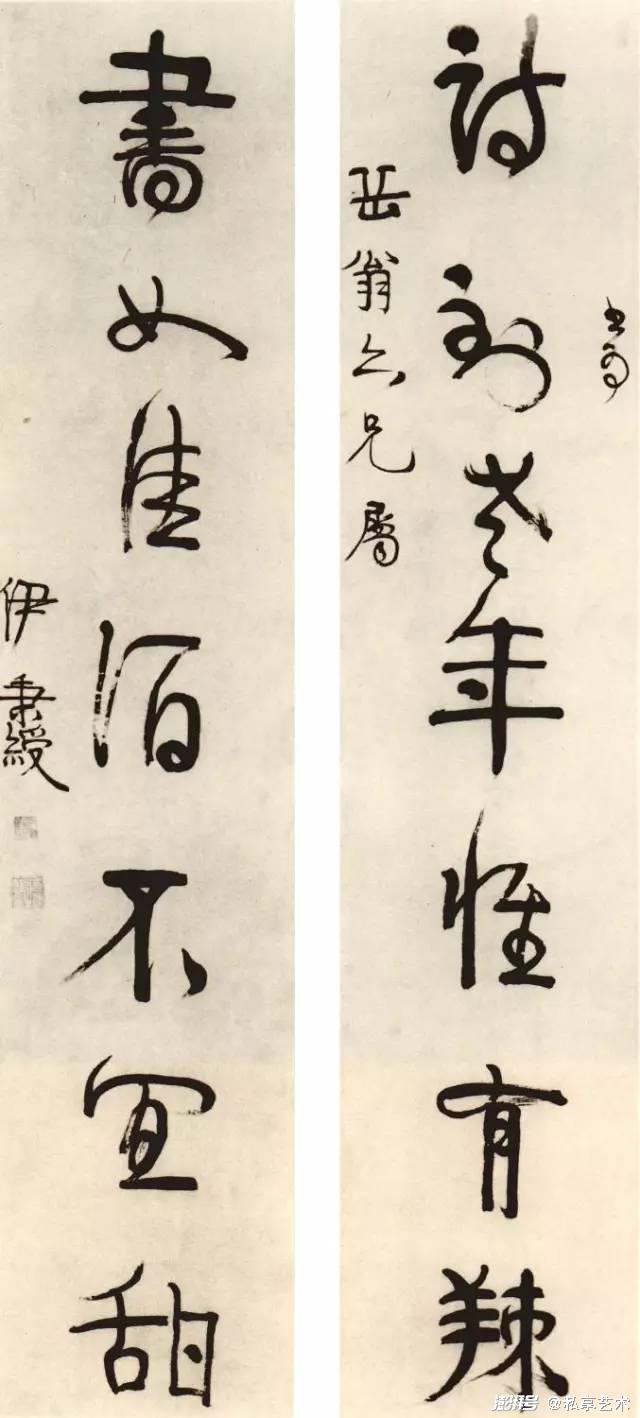 詩到老年惟有辣
岳翁六兄屬
書如佳酒不宜甜
伊秉綬
澎湃号 @私享艺术